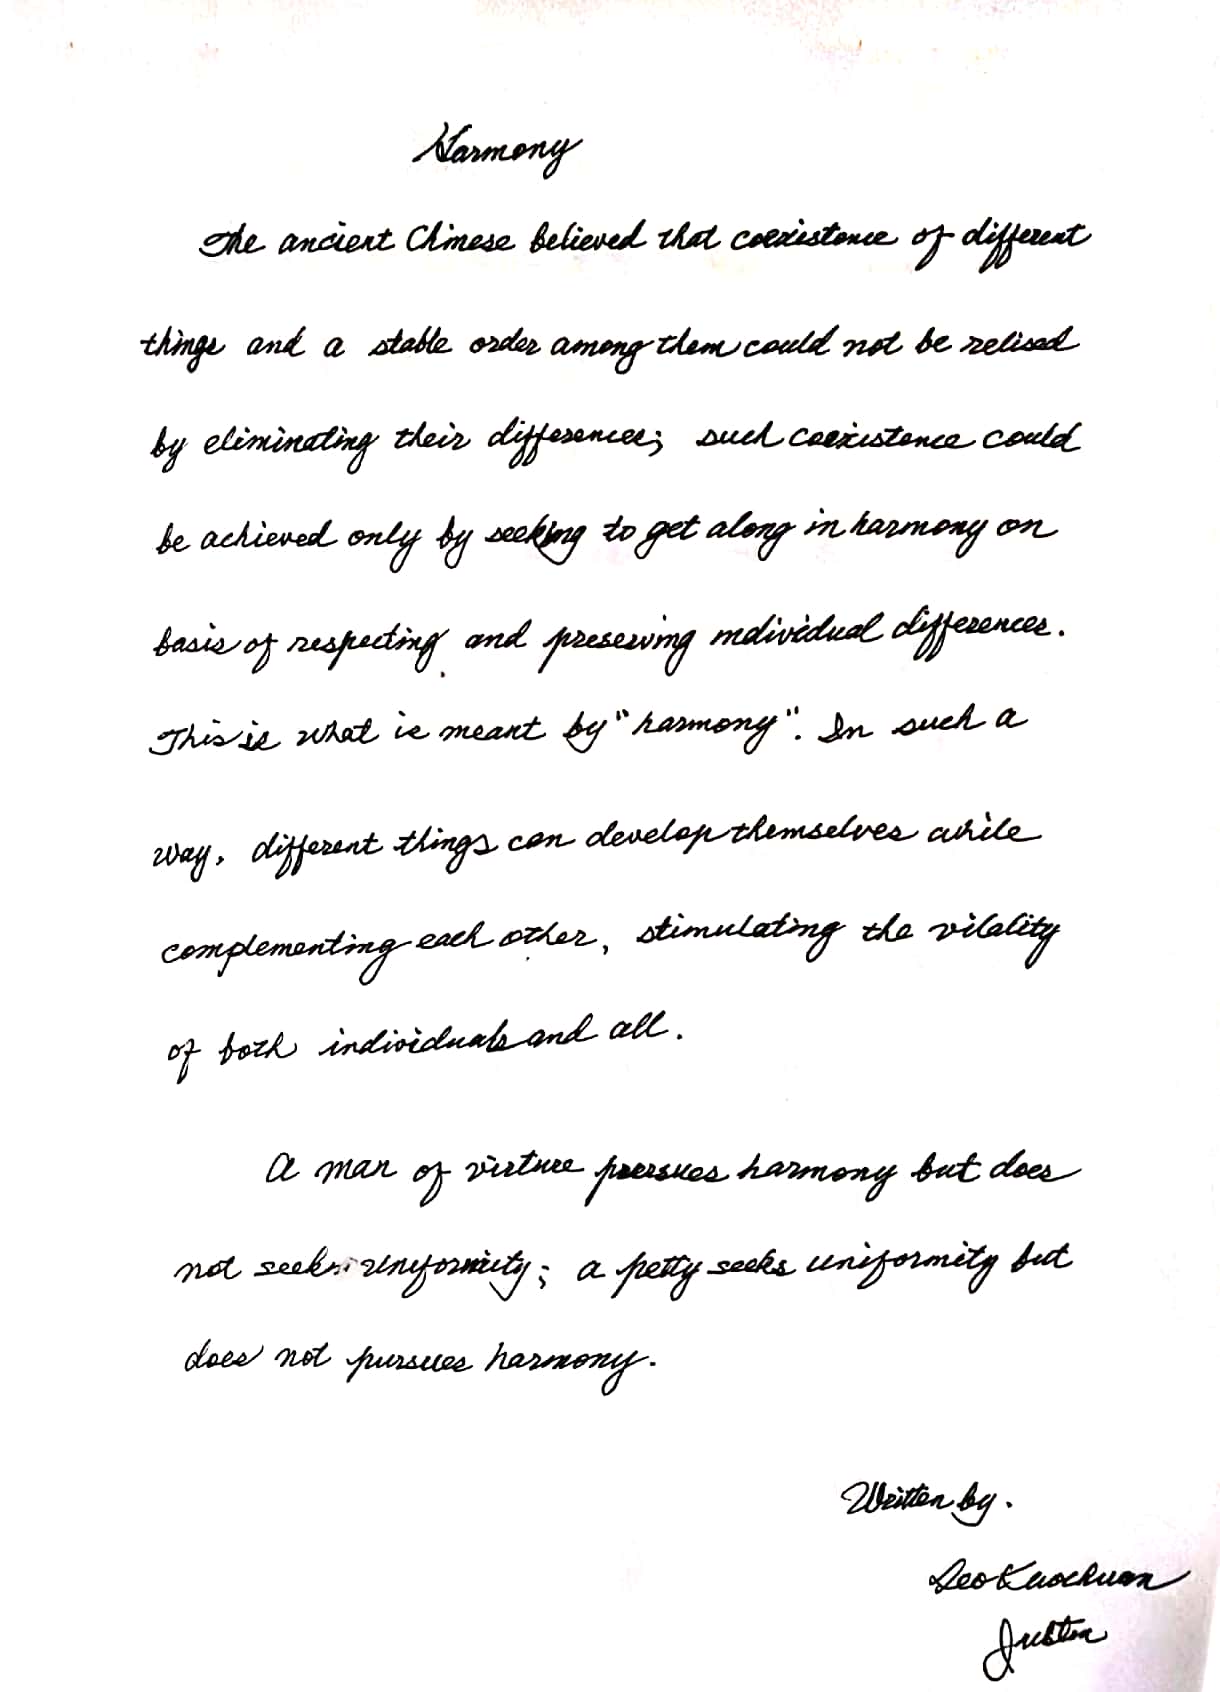 Harmony
The ancient Chinese believed that coexistence of different
things and a stable order among them could not be relised
by eliminating their differences; such coexistence could
be achieved only by seeking to get along in harmony on
basis of respecting and preserving individual differences.
This is what is meant by "harmony". In such a
way, different things can develop themselves while
complementing each other, stimulating the vitality
of both individuals and all.
A man of virture pursues harmony but does
not seek uniformity; a petty seeks uniformity but
does not pursues harmony.
Written by.
Justin